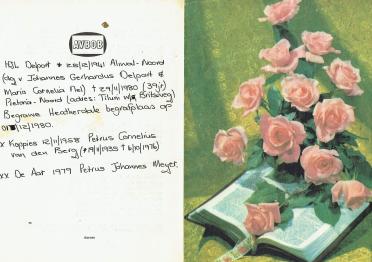 AVBOB
HJL Delport * 28/12/1941 Aliwal-Noord
(dg v Johannes Gerhardus Delport &
Maria Cornelia Nel) † 29/11/1980 (39jr)
Pretoria-Noord (adres: Tilum Britsweg)
Begrawe Heatherdale begrafplaas op
/12/1980.
x Koppies 12/11/1958 Petrus Cornelius
van den Berg (*19/11/1935 † 6/10/1976)
xx De Aar 1979 Petrus Johannes Meyer.